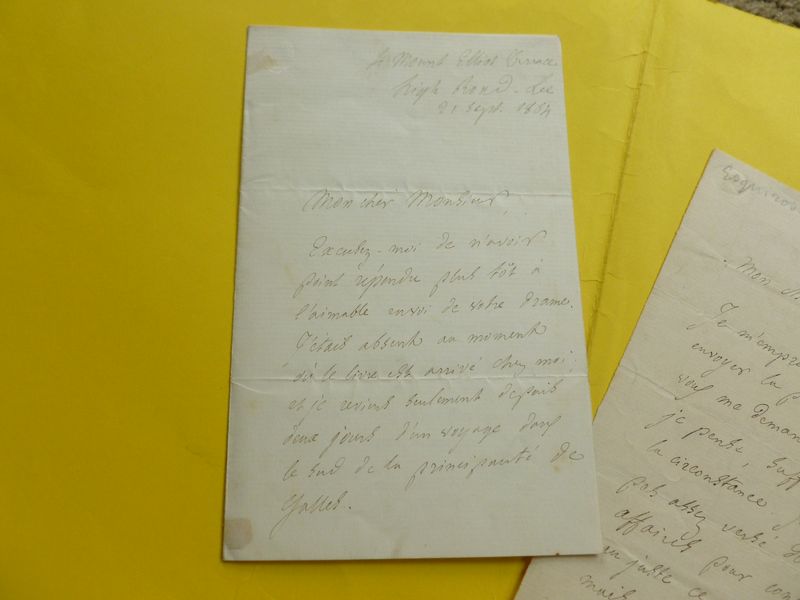 4 Mount Elliot Terrace
High Road - Lee
21 Sept. 1864
Mon cher Monsieur,
Excusez-moi de n'avoir
point répondu plus tôt à
l'aimable envoi de votre drame.
J'étais absent au moment
où le livre est arrivé chez moi;
et je reviens seulement depuis
deux jours d'un voyage dans
le sud de la principauté de
Galles.
Esquiros
Mon
Je n'empre
envoyer la p
vous me deman
je pense, suff
la circonstance.
pas assez versé
affaires pour con
au juste ce
mais